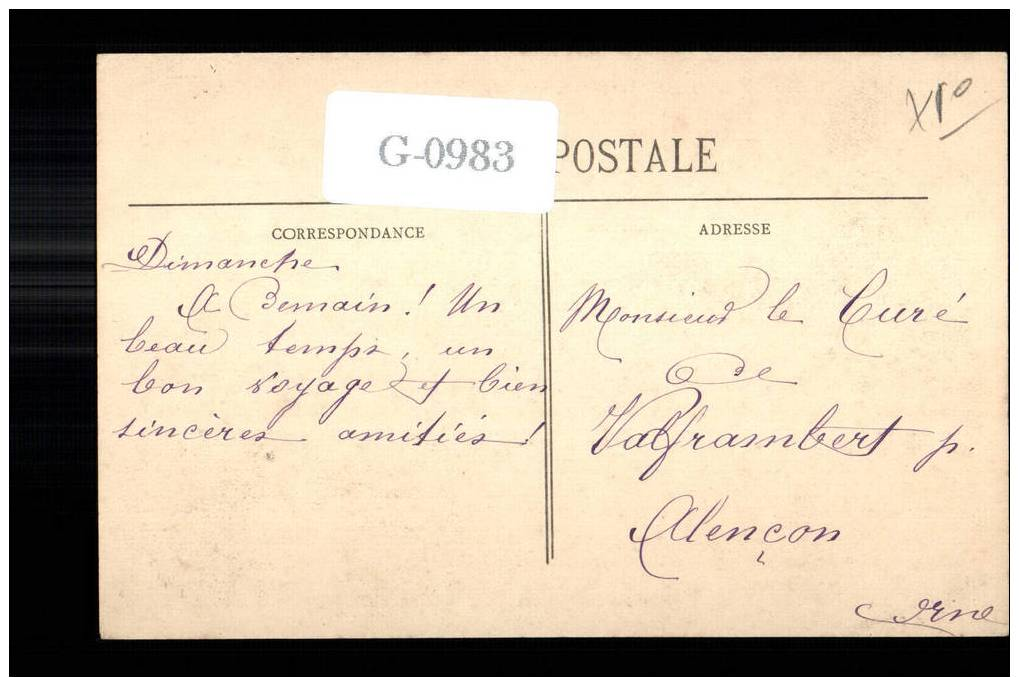 G-0983
POSTALE
CORRESPONDANCE
Dimanche
A Demain ! Un
beau temps, un
bon voyage et bien
sincères amitiés !
ADRESSE
Monsieur le Curé
de
Valframbert p.
Alençon
Orne